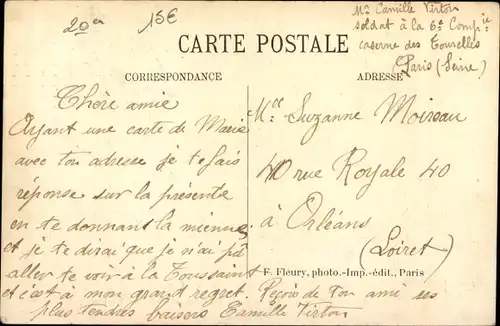 20er 15E
Mr Camille Virton
soldat à la 6e Compie
caserne des Tourelles
Paris (Seine)
CARTE POSTALE
CORRESPONDANCE
ADRESSE
Chère amie
Ayant une carte de Marie
avec ton adresse je te fais
réponse sur la présente
en te donnant la mienne
et je te dirai que je n'ai pu
aller te voir à la Toussaint
et c'est à mon grant regret. Reçois de ton ami ses
plus tendres baisers Camille Virton
Mlle Suzanne Moireau
40 rue Royale 40
à Orléans
(Loiret)
F. Fleury, photo.-Imp.-édit., Paris